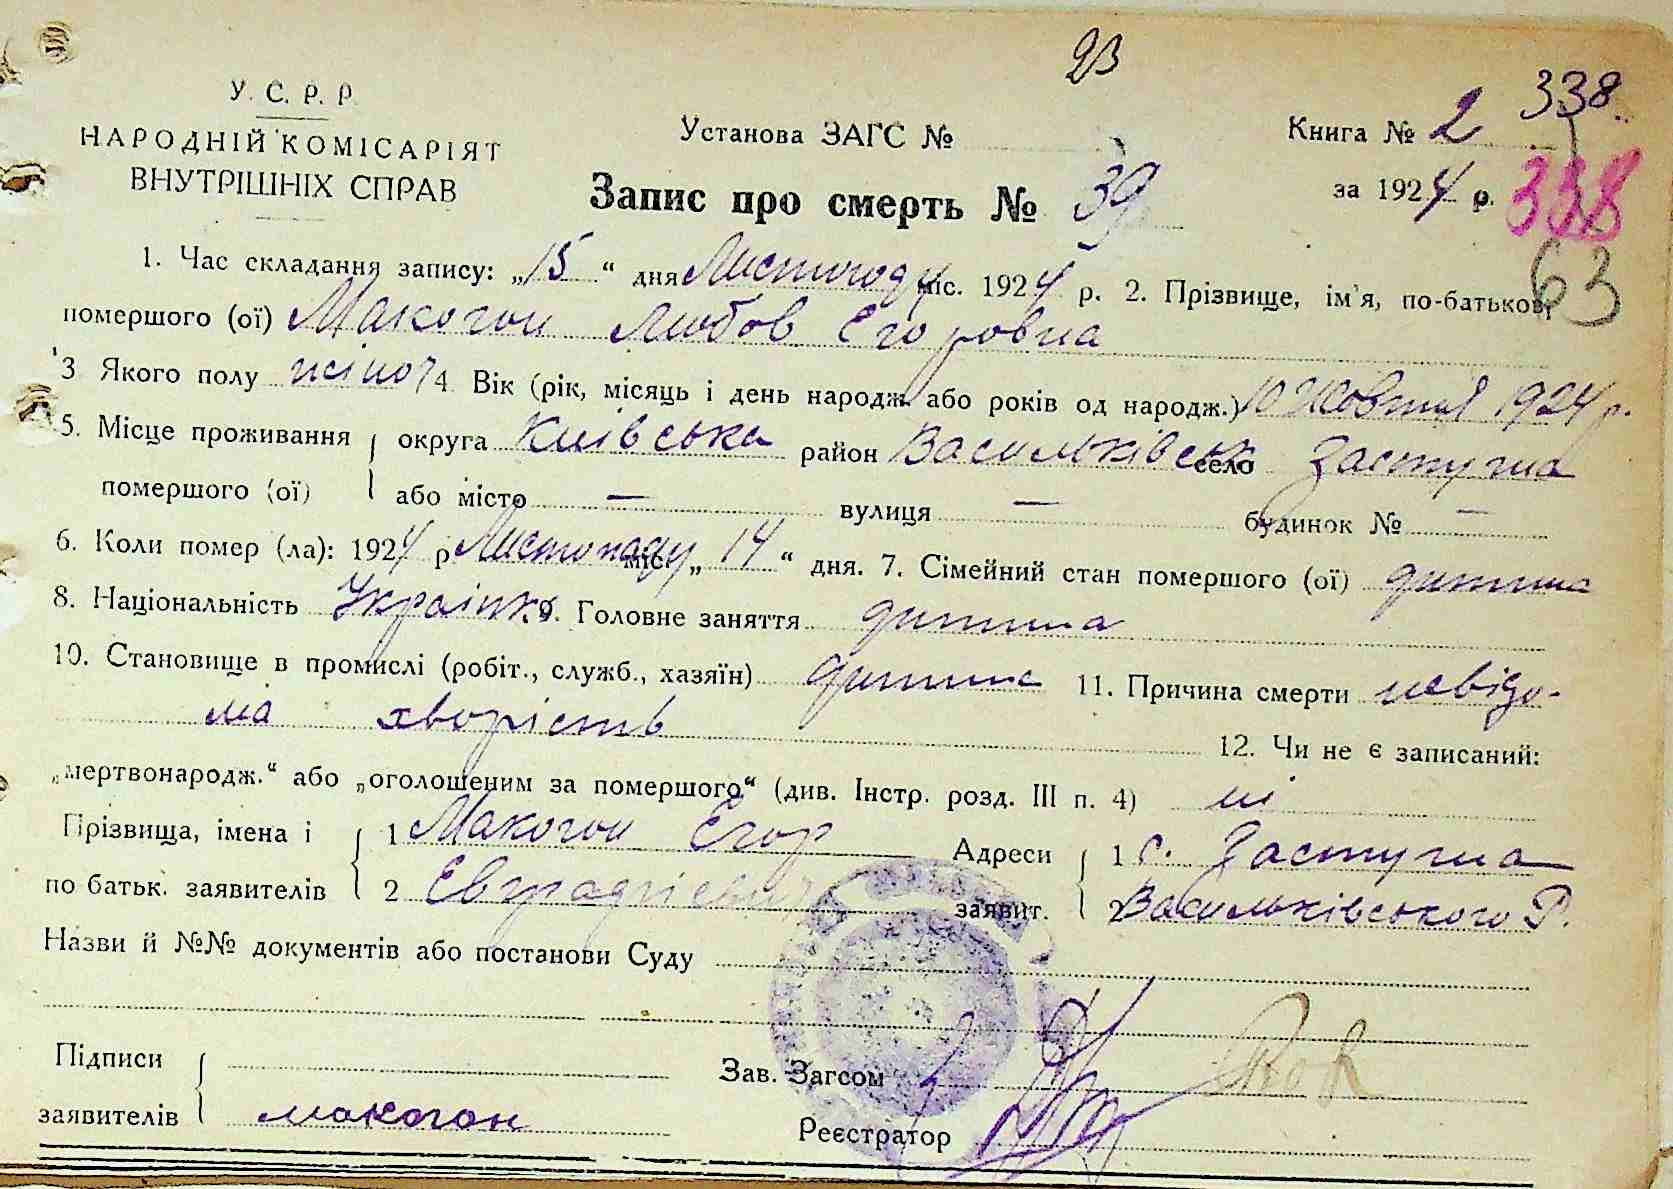 23
338
У. С. Р. Р.
НАРОДНІЙ КОМІСАРІЯТ
ВНУТРІШНІХ СПРАВ
Установа ЗАГС №
Книга № 2
Запис про смерть № 39
за 1924 р.
338
63
1. Час складання запису: „15“ дня Листопаду міс. 1924 р. 2. Прізвище, ім'я, по-батькові
помершого (ої) Макогон Любов Єгоровна
3 Якого полу жіноч 4. Вік (рік, місяць і день народж. або років од народж.) 10 Жовтня 1924 р.
5. Місце проживання округа Київська район Васильківськ село Застугна
помершого (ої) або місто — вулиця — будинок № —
6. Коли помер (ла): 1924 р Листопаду міс. „14“ дня. 7. Сімейний стан помершого (ої) дитина
8. Національність Українка 9. Головне заняття дитина
10. Становище в промислі (робіт., служб., хазяїн) дитина 11. Причина смерти невідо-
ма хворість
12. Чи не є записаний:
„мертвонародж.“ або „оголошеним за помершого“ (див. Інстр. розд. III п. 4) ні
Прізвища, імена і 1 Макогон Єгор Адреси 1 с. Застугна
по батьк. заявителів 2 заявит. 2 Васильківського Р.
Назви й №№ документів або постанови Суду
Підписи
Зав. Загсом
заявителів макогон
Реєстратор